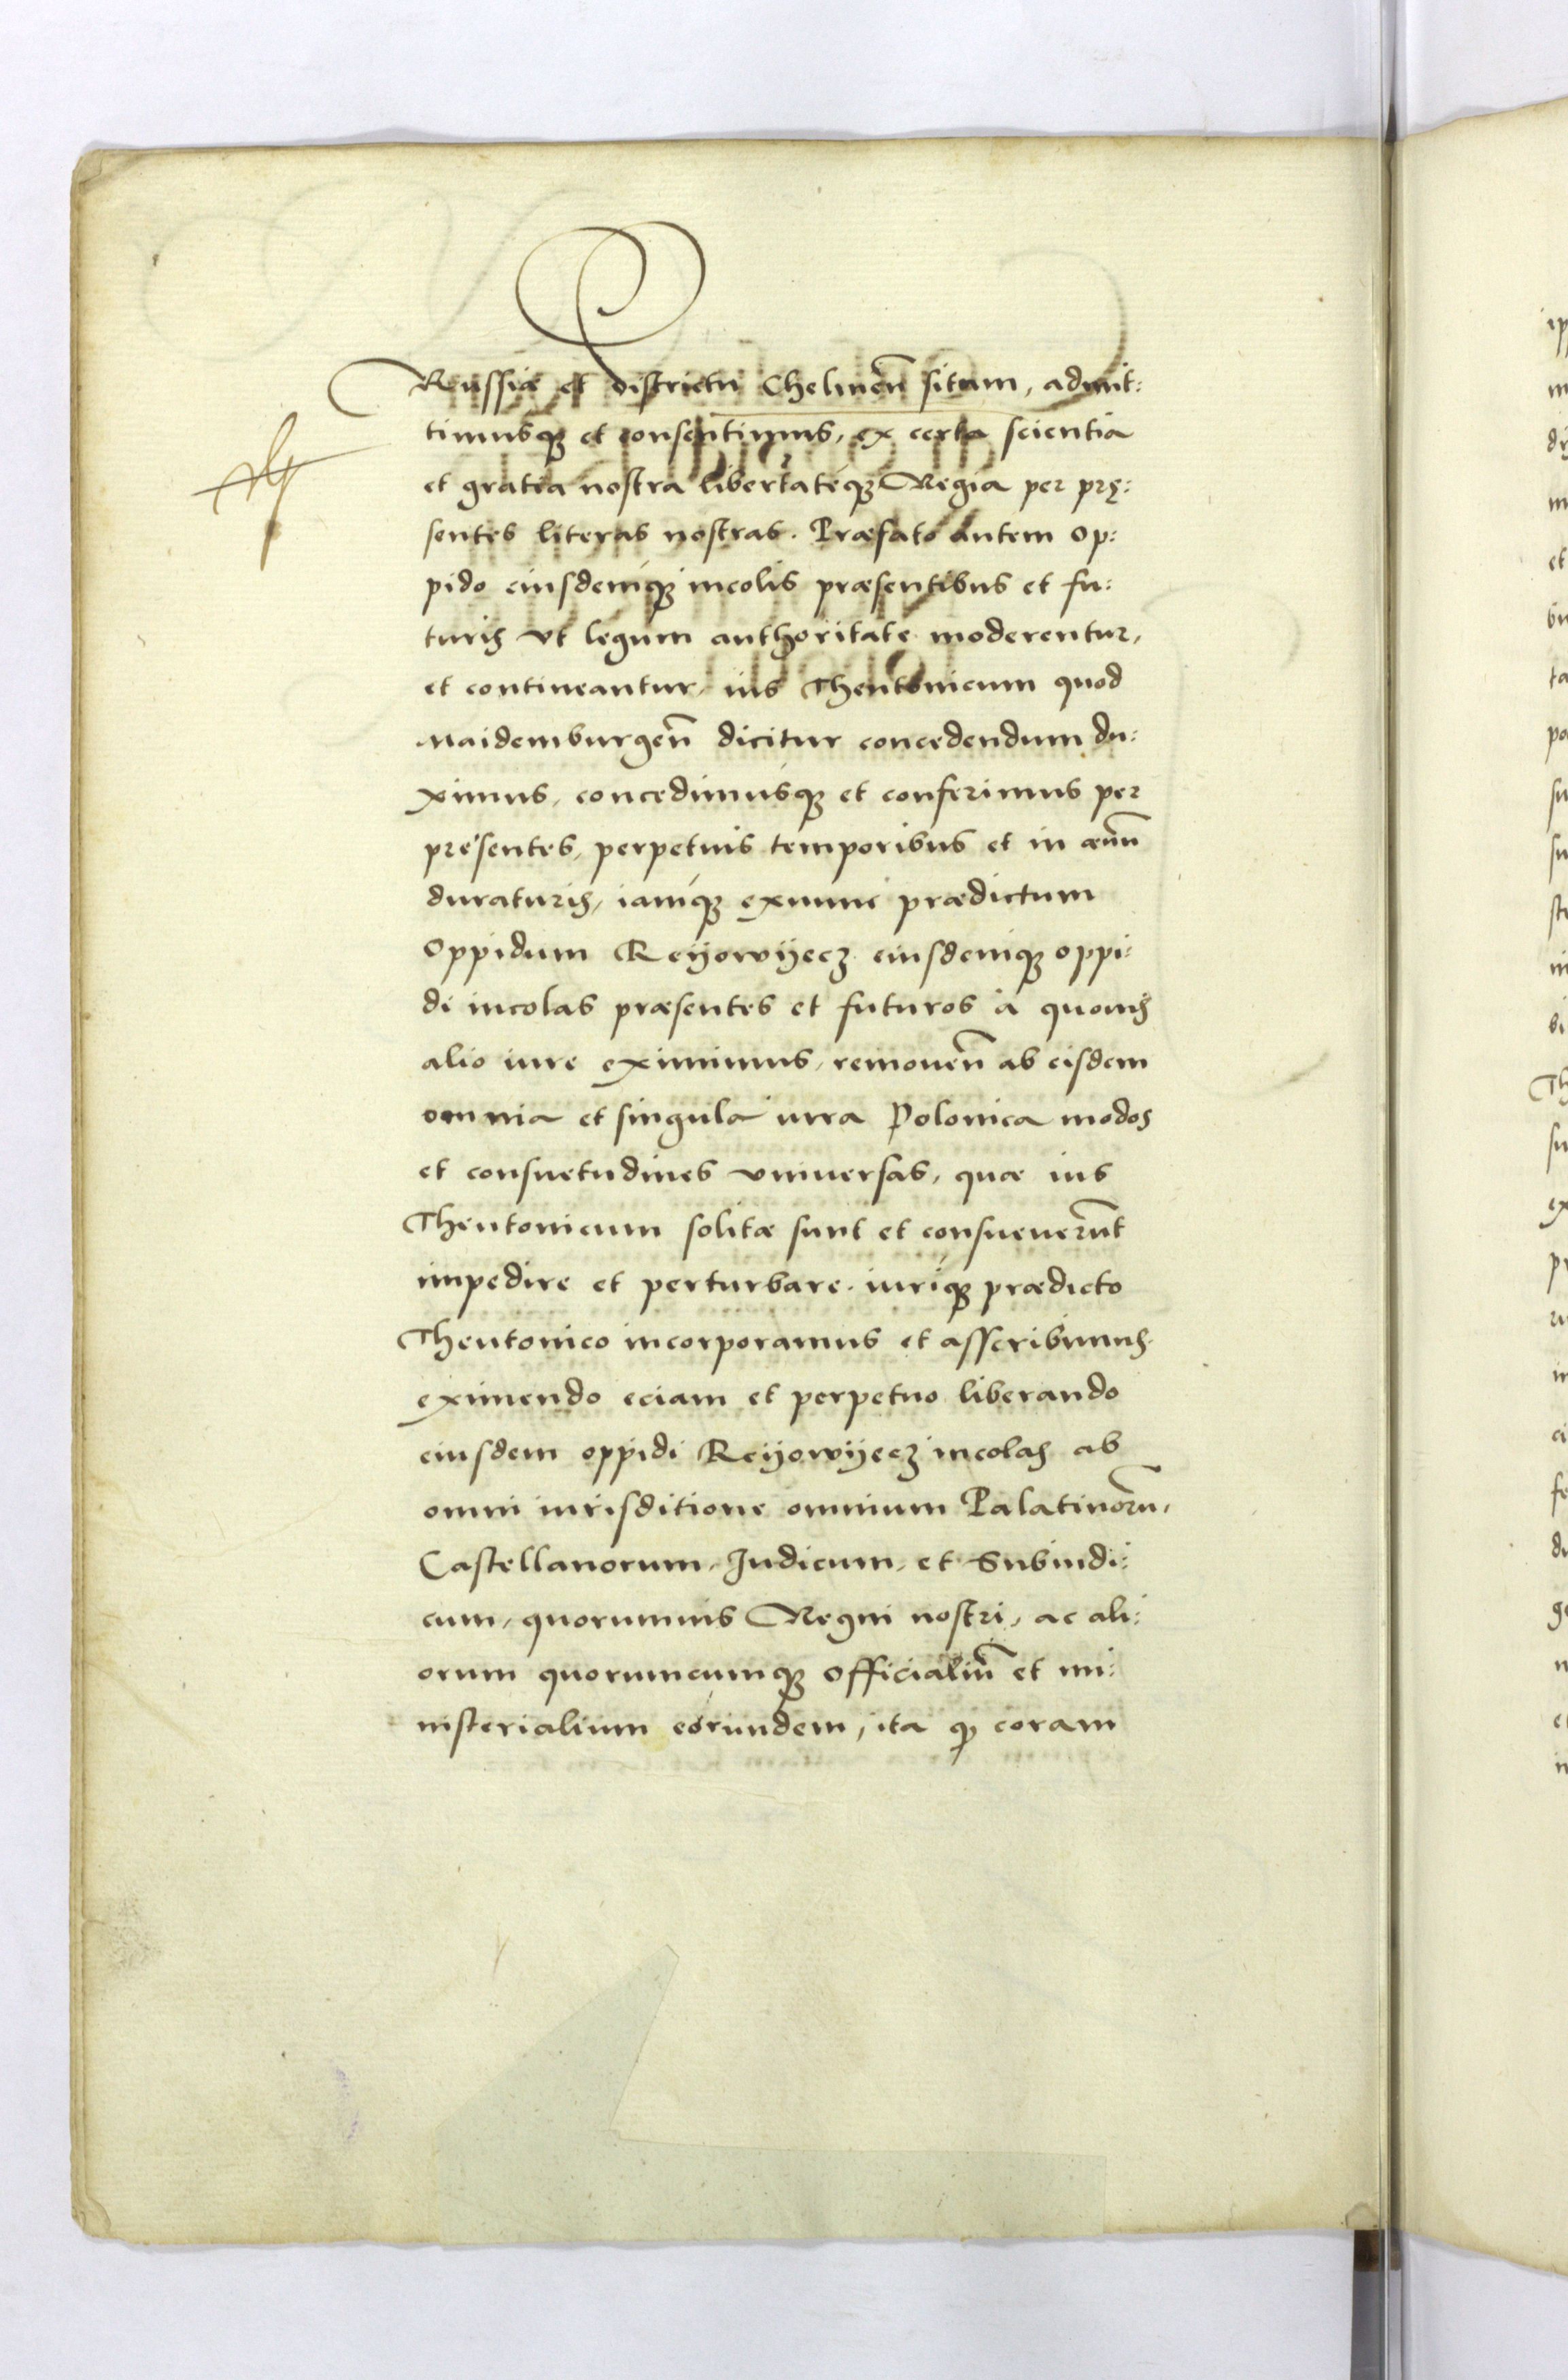 Russiæ et districtu Chelmeñ sitam, admit:
timusqꝫ et consentimus, ex certa scientia
et gratia nostra libertateqꝫ Regia per prę:
sentes literas nostras. Præfato autem op:
pido eiusdemqꝫ incolis præsentibus et fu:
turis vt legum authoritate moderentur,
et contineantur, ius Theutonicum quod
Maidemburgeñ dicitur concedendum du:
ximus, concedimusqꝫ et conferimus per
presentes, perpetuis temporibus et in æuū
duraturis, iamqꝫ exnunc prædictum
Oppidum Reyowyecz eiusdemqꝫ oppi:
di incolas præsentes et futuros à quouis
alio iure eximimus, remoueñ ab eisdem
omnia et singula iura Polonica modos
et consuetudines vniuersas, quæ ius
Theutonicum solitæ sunt et consueuerūt
impedire et perturbare. iuriqꝫ prædicto
Theutonico incorporamus et asscribimus.
eximendo eciam et perpetuo liberando
eiusdem oppidi Reyowyecz incolas ab
omni iurisditione omnium Palatinorū,
Castellanorum, Iudicum, et Subiudi:
cum, quorumuis Regni nostri, ac ali:
orum quorumcumqꝫ officialiū et mi:
nisterialium eorundem, ita ꝙ coram